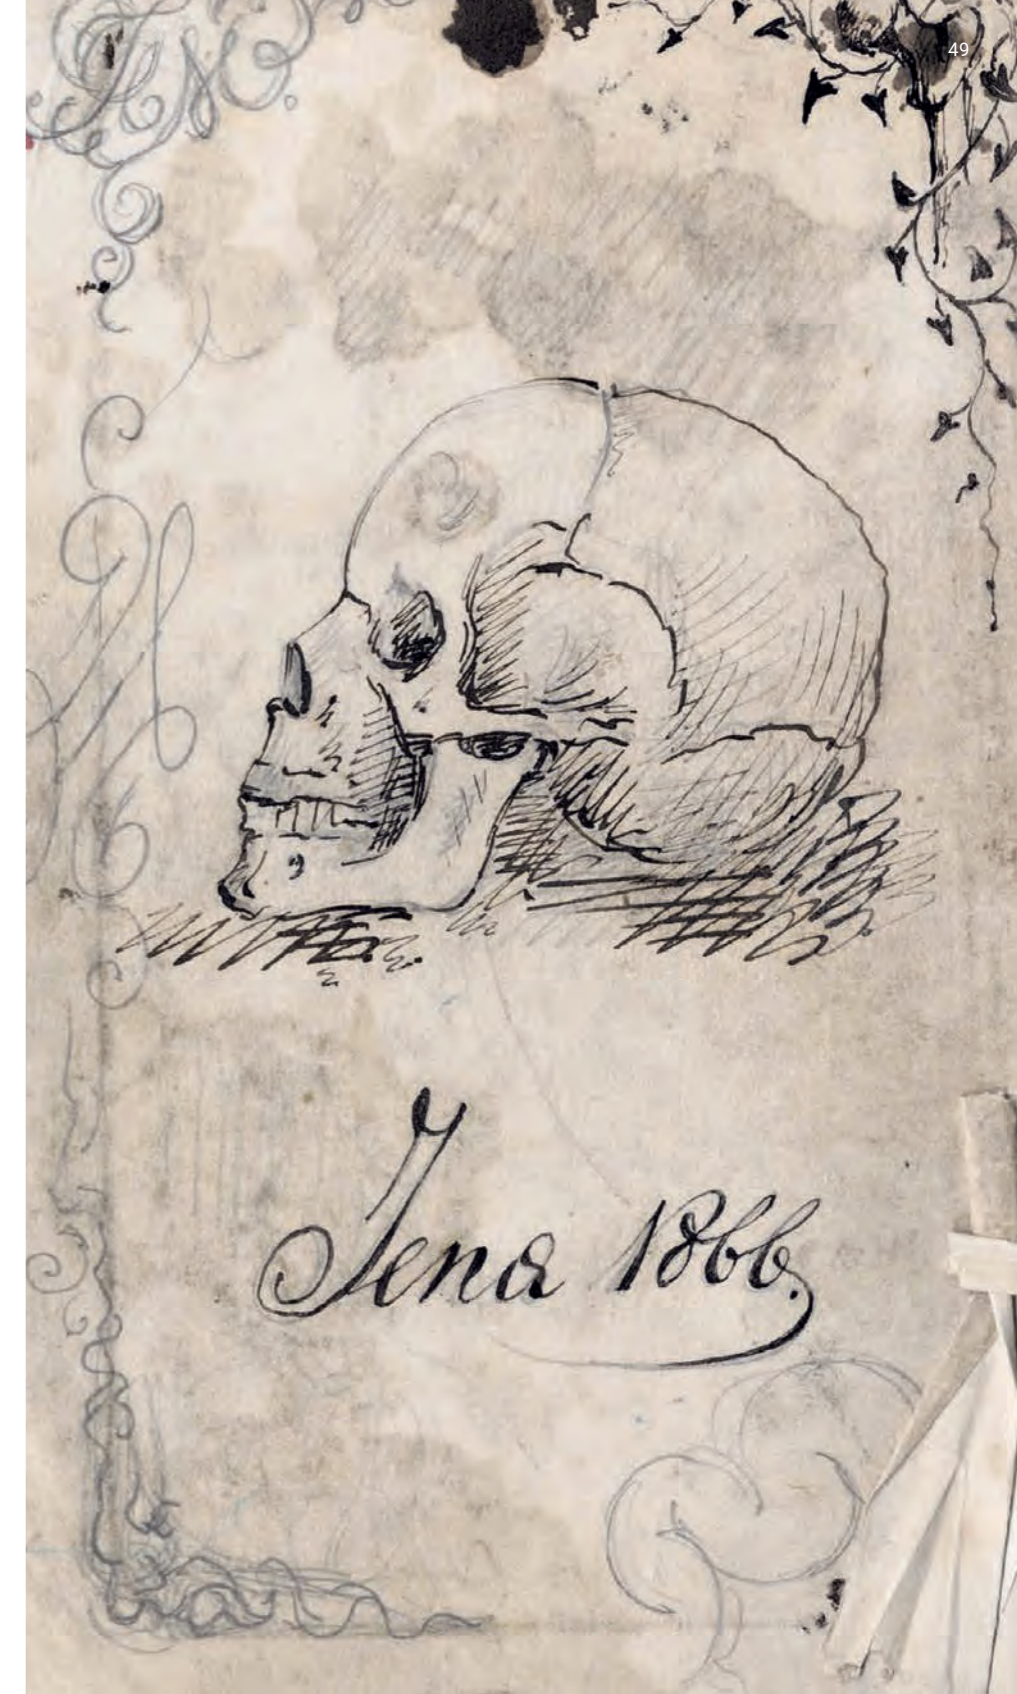 49
Jena 1866.